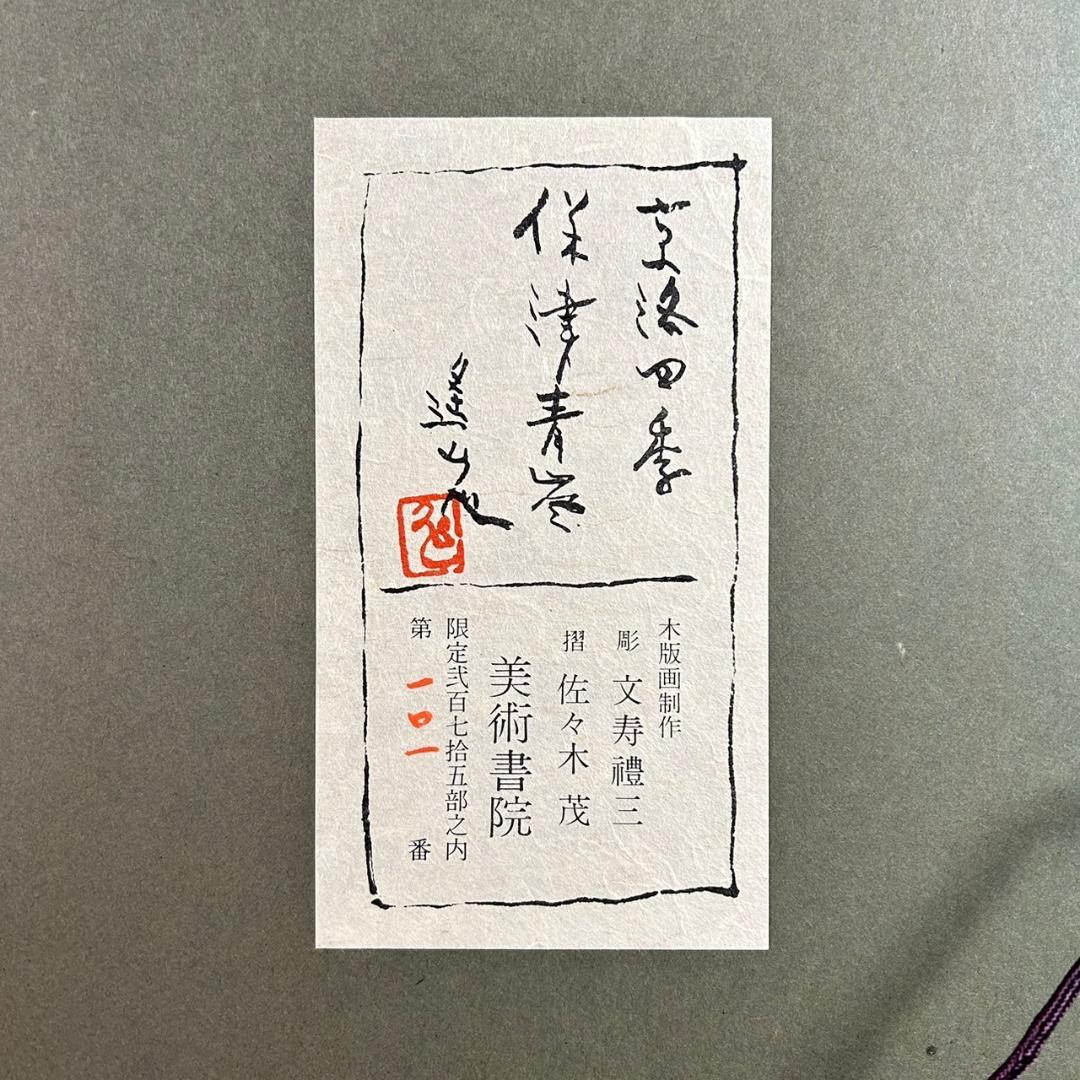 京洛四季
保津青嵐
木版画制作
彫 文寿禮三
摺 佐々木茂
美術書院
限定弐百七拾五部之内
第 一〇一 番